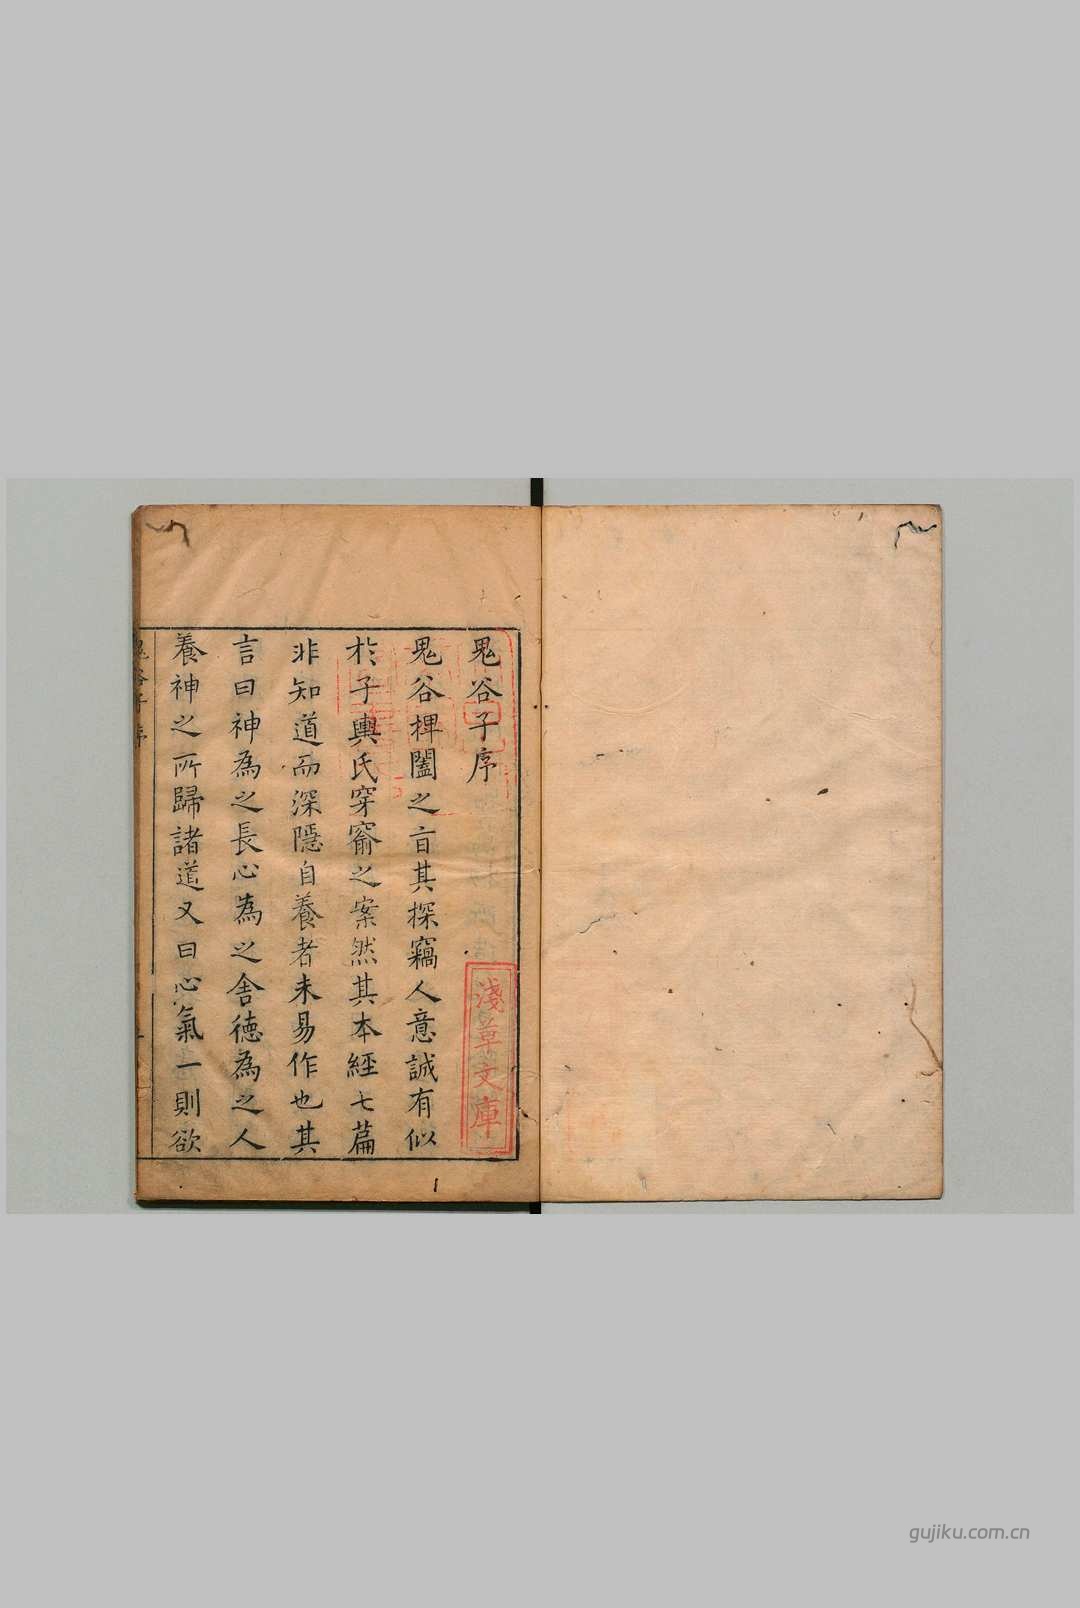 鬼谷子序
鬼谷捭闔之㫖其探竊人意誠有似
於子輿氏穿窬之案然其本經七篇
非知道而深隱自養者未易作也其
言曰神為之長心為之舍德為之人
養神之所歸諸道又曰心氣一則欲
鬼谷子 序
淺草文庫
gujiku.com.cn